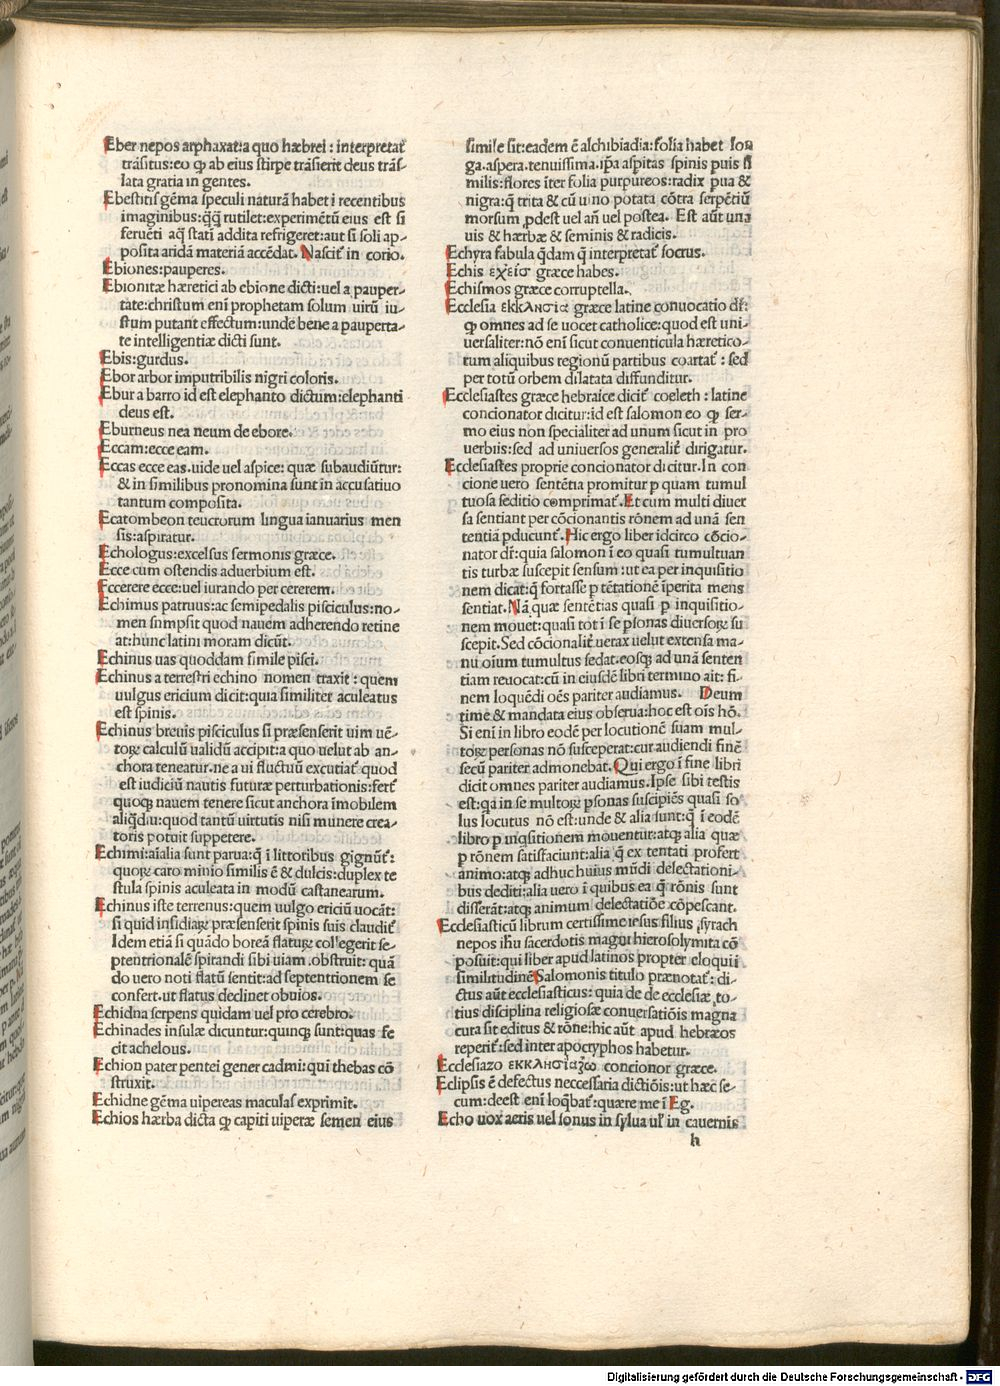 Eber nepos arphaxat:a quo hæbrei : interpretat᷑
trāsitus:eo ꝙ ab eius stirpe trāsierit deus trāſ-
lata gratia in gentes.
Ebestitis gēma speculi naturā habet i recentibus
imaginibus:q̄q̄ rutilet:experimētū eius est si
feruēti aq̄ statī addita refrigeret:aut si soli ap-
posita aridā materiā accēdat. Nascit᷑ in corio.
Ebiones:pauperes.
Ebionitæ hæretici ab ebione dicti:uel a pauper-
tate:christum enī prophetam solum uirū iu-
stum putant effectum:unde bene a pauperta-
te intelligentiæ dicti sunt.
Ebis:gurdus.
Ebor arbor imputribilis nigri coloris.
Ebur a barro id est elephanto dictum:elephanti
deus est.
Eburneus nea neum de ebore.
Eccam:ecce eam.
Eccas ecce eas.uide uel aspice: quæ subaudiūtur:
& in similibus pronomina sunt in accusatiuo
tantum composita.
Ecatombeon teucrorum lingua ianuarius men
sis:aspiratur.
Echologus:excelsus sermonis græce.
Ecce cum ostendis aduerbium est.
Eccerere ecce:uel iurando per cererem.
Echimus patruus:ac semipedalis pisciculus:no-
men snmpsit quod nauem adherendo retine
at:hunc latini moram dicūt.
Echinus uas quoddam simile pisci.
Echinus a terrestri echino nomen traxit : quem
uulgus ericium dicit:quia similiter aculeatus
est spinis.
Echinus breuis pisciculus si præsenserit uim uē-
toꝝ calculū ualidū accipit:a quo uelut ab an-
chora teneatur.ne a ui fluctuū excutiat᷑ quod
est iudiciū nautis futuræ perturbationis:fert᷑
quoqꝫ nauem tenere sicut anchora īmobilem
aliq̄diu:quod tantū uirtutis nisi munere crea-
toris potuit suppetere.
Echimi:aīalia sunt parua:q̄ ī littoribus gignūt᷑:
quoꝝ caro minio similis ē & dulcis:duplex te
stula spinis aculeata in modū castanearum.
Echinus iste terrenus:quem uulgo ericiū uocāt:
si quid insidiaꝝ præsenserit spinis suis claudit᷑
Idem etiā si quādo boreā flatuꝝ collegerit se-
ptentrionalē spirandi sibi uiam .obstruit: quā
do uero noti flatū sentit:ad septentrionem se
confert.ut flatus declinet obuios.
Echidna serpens quidam uel pro cerebro.
Echinades insulæ dicuntur:quinqꝫ sunt:quas fe
cit achelous.
Echion pater pentei gener cadmi:qui thebas cō
struxit.
Echidne gēma uipereas maculas exprimit.
Echios hærba dicta ꝙ capiti uiperæ semen eius
simile sit:eadem ē alchibiadia:folia habet lon
ga.aspera.tenuissima.ip̄a aspitas spinis puis si
milis:flores īter folia purpureos:radix pua &
nigra:q̄ trita & cū uino potata cōtra serpētiū
morsum ꝓdest uel añ uel postea. Est aūt una
uis & hærbæ & seminis & radicis.
Echyra fabula q̄dam q̄ interpretat᷑ socrus.
Echis εχεισ græce habes.
Echismos græce corruptella.
Ecclesia εκκλησια græce latine conuocatio dr̄:
ꝙ omnes ad se uocet catholice:quod est uni-
uersaliter:nō enī sicut conuenticula hæretico-
rum aliquibus regionū partibus coartat᷑ : sed
per totū orbem dilatata diffunditur.
Ecclesiastes græce hebraice dicit᷑ coeleth : latine
concionator dicitur:id est salomon eo ꝙ ser-
mo eius non specialiter ad unum sicut in pro
uerbiis:sed ad uniuersos generalit᷑ dirigatur.
Ecclesiastes proprie concionator dicitur.In con
cione uero sentētia promitur ꝑ quam tumul
tuosa seditio comprimat᷑.Et cum multi diuer
sa sentiant per cōcionantis rōnem ad unā sen
tentiā ꝑducunt᷑. Hic ergo liber idcirco cōcio-
nator dr̄:quia salomon ī eo quasi tumultuan
tis turbæ suscepit sensum : ut ea per inquisitio
nem dicat:q̄ fortasse ꝑ tētationē īperita mens
sentiat.Nā quæ sentētias quasi ꝑ inquisitio-
nem mouet:quasi tot ī se ꝑsonas diuersoꝝ su
scepit.Sed cōcionalit᷑ uerax uelut extensa ma-
nu oīum tumultus sedat.eosqꝫ ad unā senten
tiam reuocat:cū in eiusdē libri termino ait: fi-
nem loquēdi oēs pariter audiamus. Deum
time & mandata eius obserua:hoc est oīs hō.
Si enī in libro eodē per locutionē suam mul-
toꝝ personas nō susceperat:cur audiendi finē
secū pariter admonebat.Qui ergo ī fine libri
dicit omnes pariter audiamus.Ipse sibi testis
est:qa in se multoꝝ ꝑsonas suscipiēs quasi so
lus locutus nō est:unde & alia sunt:q̄ ī eodē
libro ꝑ inq̄sitionem mouentur:atqꝫ alia quæ
ꝑ rōnem satisfaciunt:alia q̄ ex tentati profert
animo:atqꝫ adhuc huius mūdi delectationi-
bus dediti:alia uero ī quibus ea q̄ rōnis sunt
disserāt:atqꝫ animum delectatiōe cōpescant.
Ecclesiasticū librum certissime iesus filius syrach
nepos ihū sacerdotis magni hierosolymita cō
posuit:qui liber apud latinos propter eloquii
similitudinē Salomonis titulo prænotat᷑ : di-
ctus aūt ecclesiasticus: quia de de ecclesiæ to-
tius disciplina religiosæ conuersatiōis magna
cura sit editus & rōne:hic aūt apud hebræos
reperit᷑:sed inter apocryphos habetur.
Ecclesiazo εκκλησιαζω concionor græce.
Eclipsis ē defectus neccessaria dictiōis:ut hæc se-
cum:deest enī loq̄bat᷑:quære me ī Eg.
Echo uox aeris uel sonus in sylua ul᷑ in cauernis
h
Digitalisierung gefördert durch die Deutsche Forschungsgemeinschaft - DFG